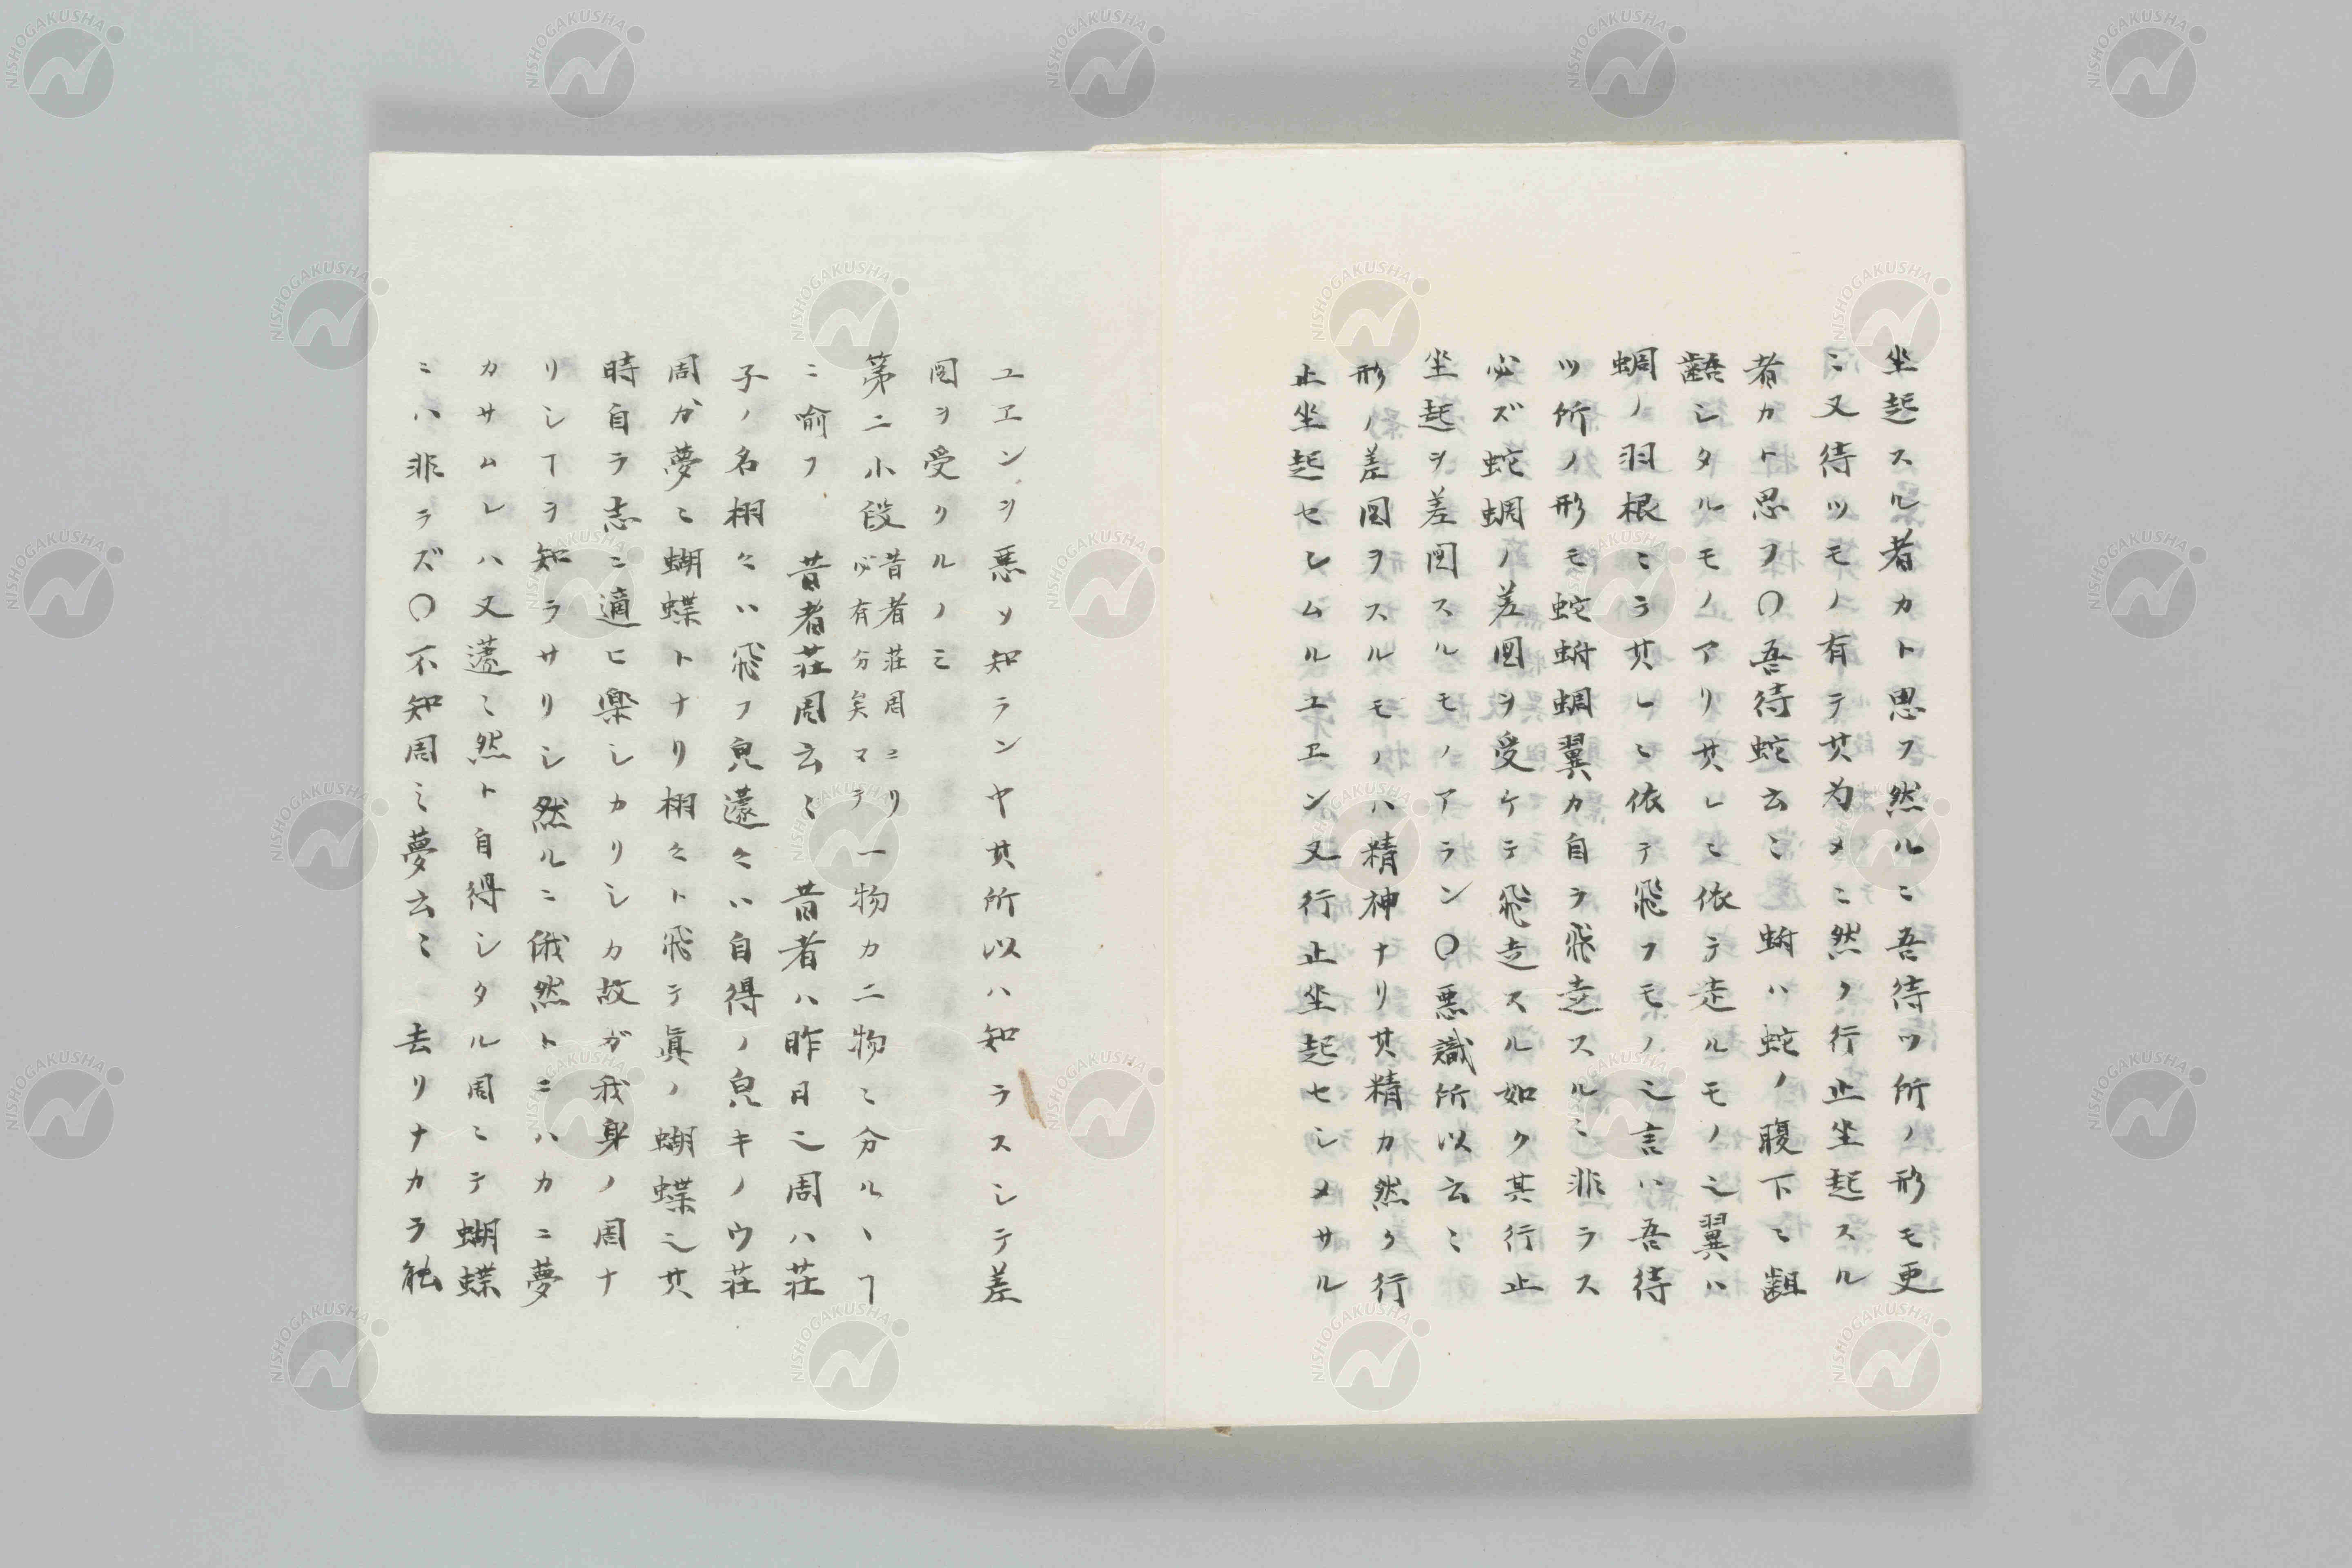 坐起スル者カト思フ然ルニ吾待ツ所ノ形モ更
ニ又待ツモノ有テ其為メニ然ク行止坐起スル
者カト思フ〇吾待蛇云〻 蚹ハ蛇ノ腹下ニ齟
齬シタルモノアリ其レニ依テ走ルモノ也翼ハ
蜩ノ羽根ニラ其レニ依テ飛フモノ也言ハ吾待
ツ所ノ形モ蛇蚹蜩翼カ自ラ飛走スルニ非ラス
必ズ蛇蜩ノ差図ヲ受ケテ飛走スル如ク其行止
坐起ヲ差図スルモノアラン〇悪識所以云〻
形ノ差図ヲスルモノハ精神ナリ其精カ然ク行
止坐起セシムルユエン又行止坐起セシメサル
ユエンヲ悪ソ知ランヤ其所以ハ知ラスシテ差
図ヲ受クルノミ
第二小段昔者荘周ヨリ
必有分矣マテ一物カ二物ニ分ルヽヿ
ニ喩フ 昔者荘周云〻 昔者ハ昨日也周ハ荘
子ノ名栩々ハ飛フ皃蘧々ハ自得ノ皃キノウ荘
周が夢ニ蝴蝶トナリ栩々ト飛テ眞ノ蝴蝶也其
時自ラ志ニ適ヒ楽シカリシカ故ガ我身ノ周ナ
リシヿヲ知ラサリシ然ルニ俄然トニハカニ夢
カサムレハ又蘧〻然ト自得シタル周ニテ蝴蝶
ニハ非ラズ〇不知周之夢云〻 去リナカラ能
NISHOGAKUSHA